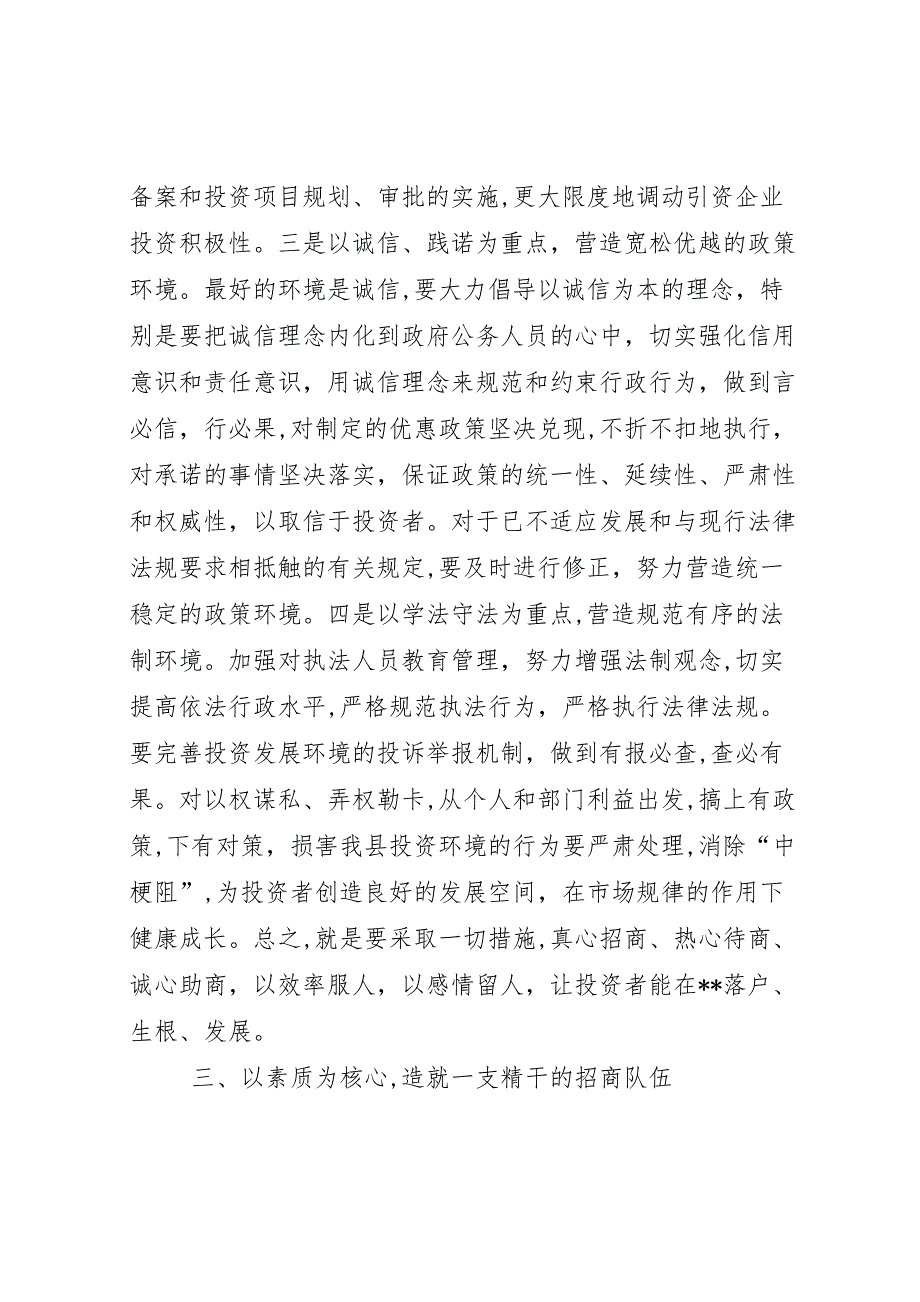 备案和投资项目规划、审批的实施,更大限度地调动引资企业
投资积极性。三是以诚信、践诺为重点，营造宽松优越的政策
环境。最好的环境是诚信,要大力倡导以诚信为本的理念，特
别是要把诚信理念内化到政府公务人员的心中，切实强化信用
意识和责任意识，用诚信理念来规范和约束行政行为，做到言
必信，行必果,对制定的优惠政策坚决兑现,不折不扣地执行，
对承诺的事情坚决落实，保证政策的统一性、延续性、严肃性
和权威性，以取信于投资者。对于已不适应发展和与现行法律
法规要求相抵触的有关规定,要及时进行修正，努力营造统一
稳定的政策环境。四是以学法守法为重点,营造规范有序的法
制环境。加强对执法人员教育管理，努力增强法制观念,切实
提高依法行政水平,严格规范执法行为，严格执行法律法规。
要完善投资发展环境的投诉举报机制，做到有报必查,查必有
果。对以权谋私、弄权勒卡,从个人和部门利益出发,搞上有政
策,下有对策，损害我县投资环境的行为要严肃处理,消除“中
梗阻”,为投资者创造良好的发展空间，在市场规律的作用下
健康成长。总之,就是要采取一切措施,真心招商、热心待商、
诚心助商，以效率服人，以感情留人，让投资者能在**落户、
生根、发展。
三、以素质为核心,造就一支精干的招商队伍